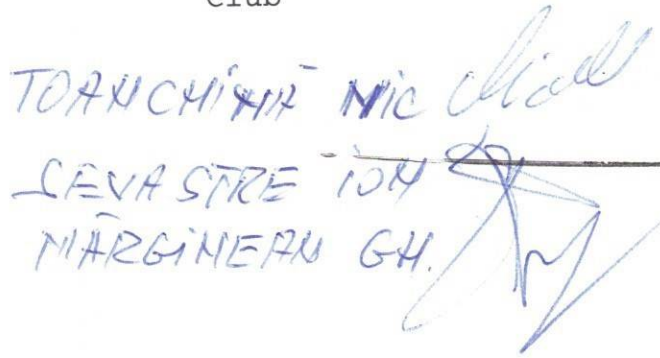 Club
TOANCHINĂ NIC
SEVASTRE ION
MĂRGINEAN GH.